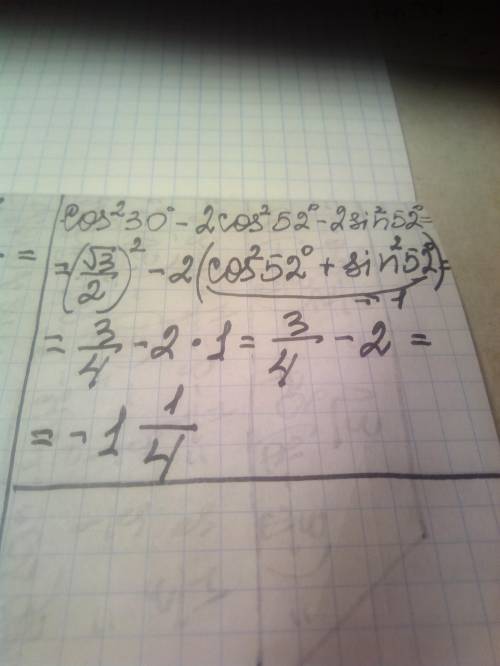 cos²30° - 2cos²52° - 2sin²52° =
= (√3/2)² - 2(cos²52° + sin²52°) =
= 1
= 3/4 - 2 · 1 = 3/4 - 2 =
= - 1 1/4